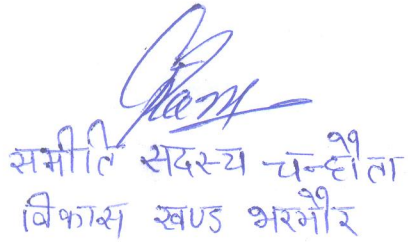 समीति सदस्य चन्हौता
विकास खण्ड भरमौर